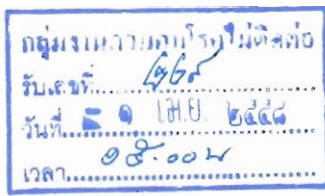 กลุ่มงานควบคุมโรคไม่ติดต่อ
รับเลขที่
วันที่ ๑ เม.ย. ๒๕๕๘
เวลา ๑๕.๐๐ น